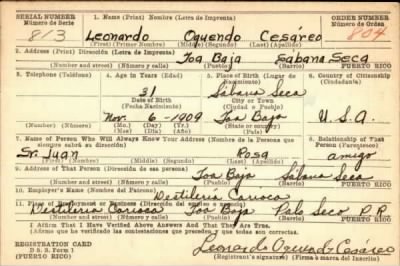 SERIAL NUMBER 1. Name (Print) Nombre (Letra de Imprenta) ORDER NUMBER
Número de Serie Número de Orden
813 Leonardo Oquendo Cesáreo 804
(First) (Primer Nombre) (Middle) (Segundo) (Last) (Apellido)
2. Address (Print) Dirección (Letra de Imprenta)
Toa Baja Sábana Seca
(Pueblo) (Barrio) PUERTO RICO
3. Telephone (Teléfono) 4. Age in Years (Edad) 5. Place of Birth (Lugar de Nacimiento) 6. Country of Citizenship
(Ciudadanía)
31 Sábana Seca
Date of Birth City or Town
(Fecha Nacimiento) (Ciudad o Pueblo)
Nov. 6-1909 Toa Baja U.S.A.
(Number) (Número) (Mo.) (Mes) (Day) (Día) (Yr.) (Año) State or country
7. Name of Person Who Will Always Know Your Address (Nombre de la Persona que 8. Relationship of That
siempre sabrá su dirección) Person (Parentesco)
Sr. Juan Rosa amigo
(First) (Middle) (Segundo) (Last) (Apellido)
9. Address of That Person (Dirección de esa persona)
Toa Baja Sábana Seca
(Pueblo) (Barrio) PUERTO RICO
10. Employer's Name (Nombre del Patrono)
Destilería Carioca
11. Place of Employment or Business
Destilería Carioca Toa Baja Palo Seco P.R.
(Pueblo) (Barrio) PUERTO RICO
I Affirm That I Have Verified Above Answers And That They Are True.
(Afirmo que he verificado las contestaciones que preceden y que son ciertas.)
REGISTRATION CARD Leonardo Oquendo Cesáreo
D. S. S. Form 1
(PUERTO RICO) (Registrant's signature) (Firma á marca del Inscrito)